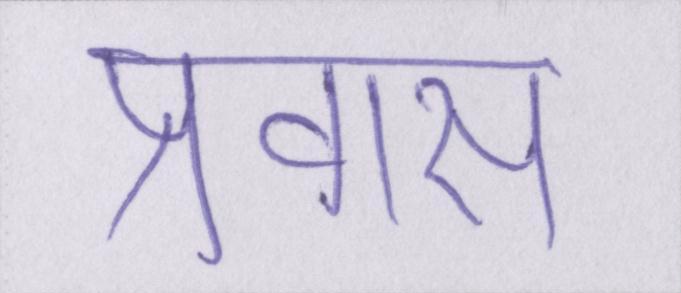 प्रवास